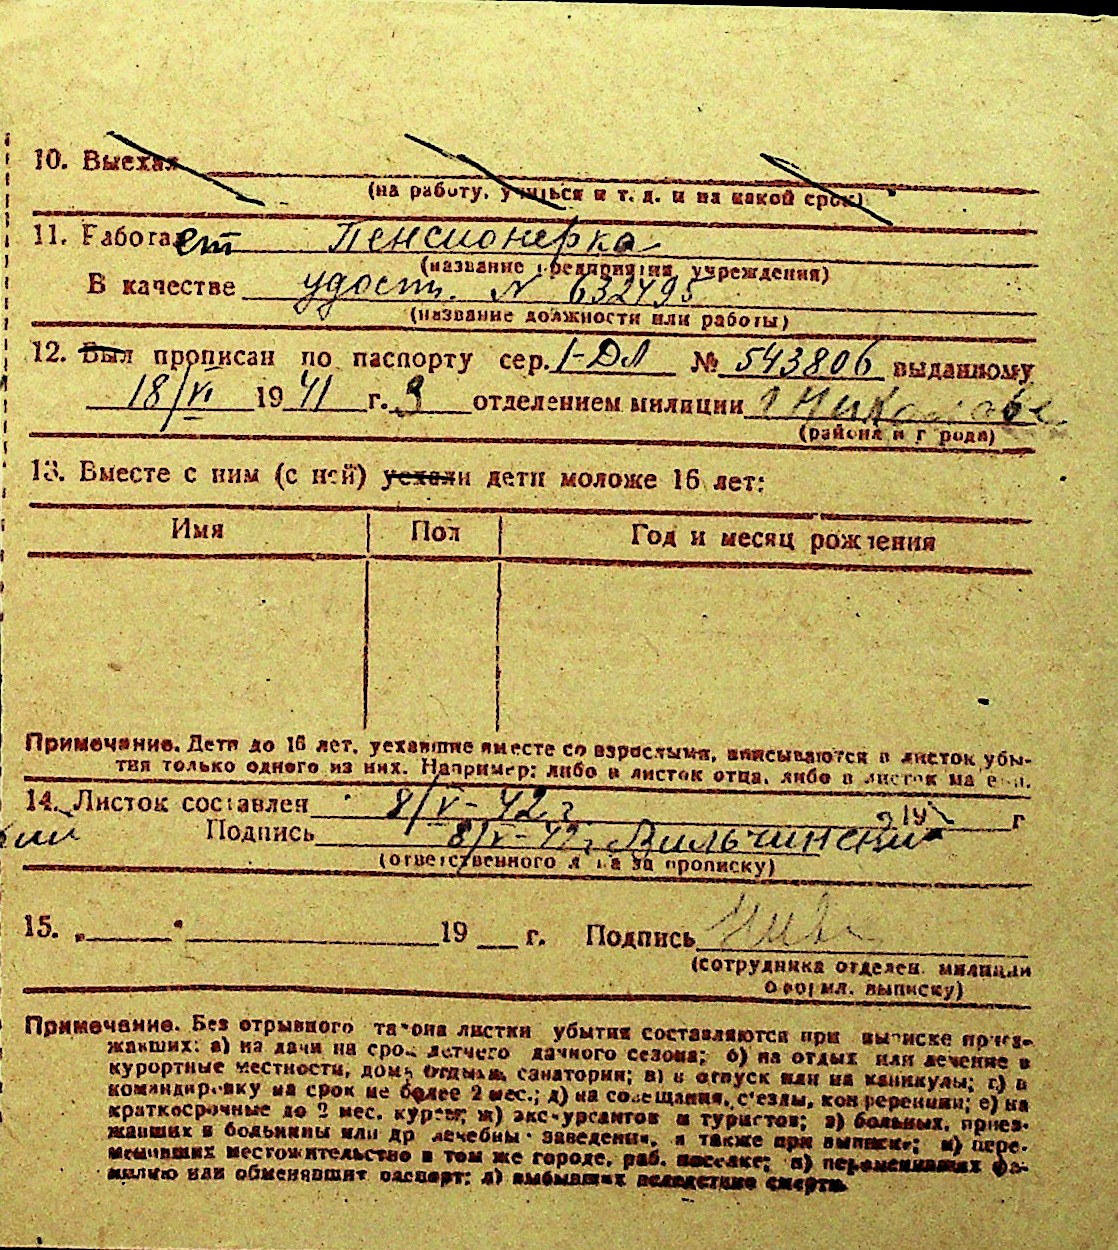 10. Выехал
(на работу, учиться и т. д. и на какой срок)
11. Работает Пенсионерка
(название предприятия, учреждения)
В качестве удост. N 632495
(название должности или работы)
12. Был прописан по паспорту сер. I-ДЛ № 543806 выданному
18/VI 1941 г. 3 отделением милиции г Николаеве
(района и города)
13. Вместе с ним (с ней) уехали дети моложе 16 лет:
Имя Пол Год и месяц рождения
Примечание. Дети до 16 лет, уехавшие вместе со взрослыми, вписываются в листок убы-
тия только одного из них. Например: либо в листок отца, либо в листок матери.
14. Листок составлен 8/V-42 г 19 г
Подпись 8/V-42 г Вильчинский
(ответственного лица за прописку)
15. „ " 19 г. Подпись
(сотрудника отделен. милиции
оформл. выписку)
Примечание. Без отрывного талона листки убытия составляются при выписке приез-
жавших: а) на дачи на срок летнего дачного сезона; б) на отдых или лечение в
курортные местности, дома отдыха, санатории; в) в отпуск или на каникулы; г) в
командировку на срок не более 2 мес.; д) на совещания, с'езды, конференции; е) на
краткосрочные до 2 мес. курсы; ж) экскурсантов и туристов; з) больных, приез-
жавших в больницы или др лечебны заведения, а также при выписке; и) пере-
менивших местожительство в том же городе, раб. поселке; к) переменивших фа-
милию или обменявших паспорт; л) выбывших вследствие смерти.